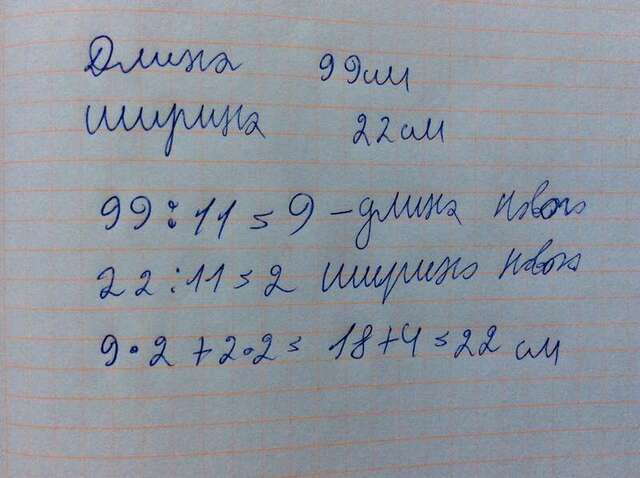 Длина 99 см
ширина 22 см
99 : 11 = 9 – длина нового
22 : 11 = 2 ширина нового
9 • 2 + 2 • 2 = 18 + 4 = 22 см